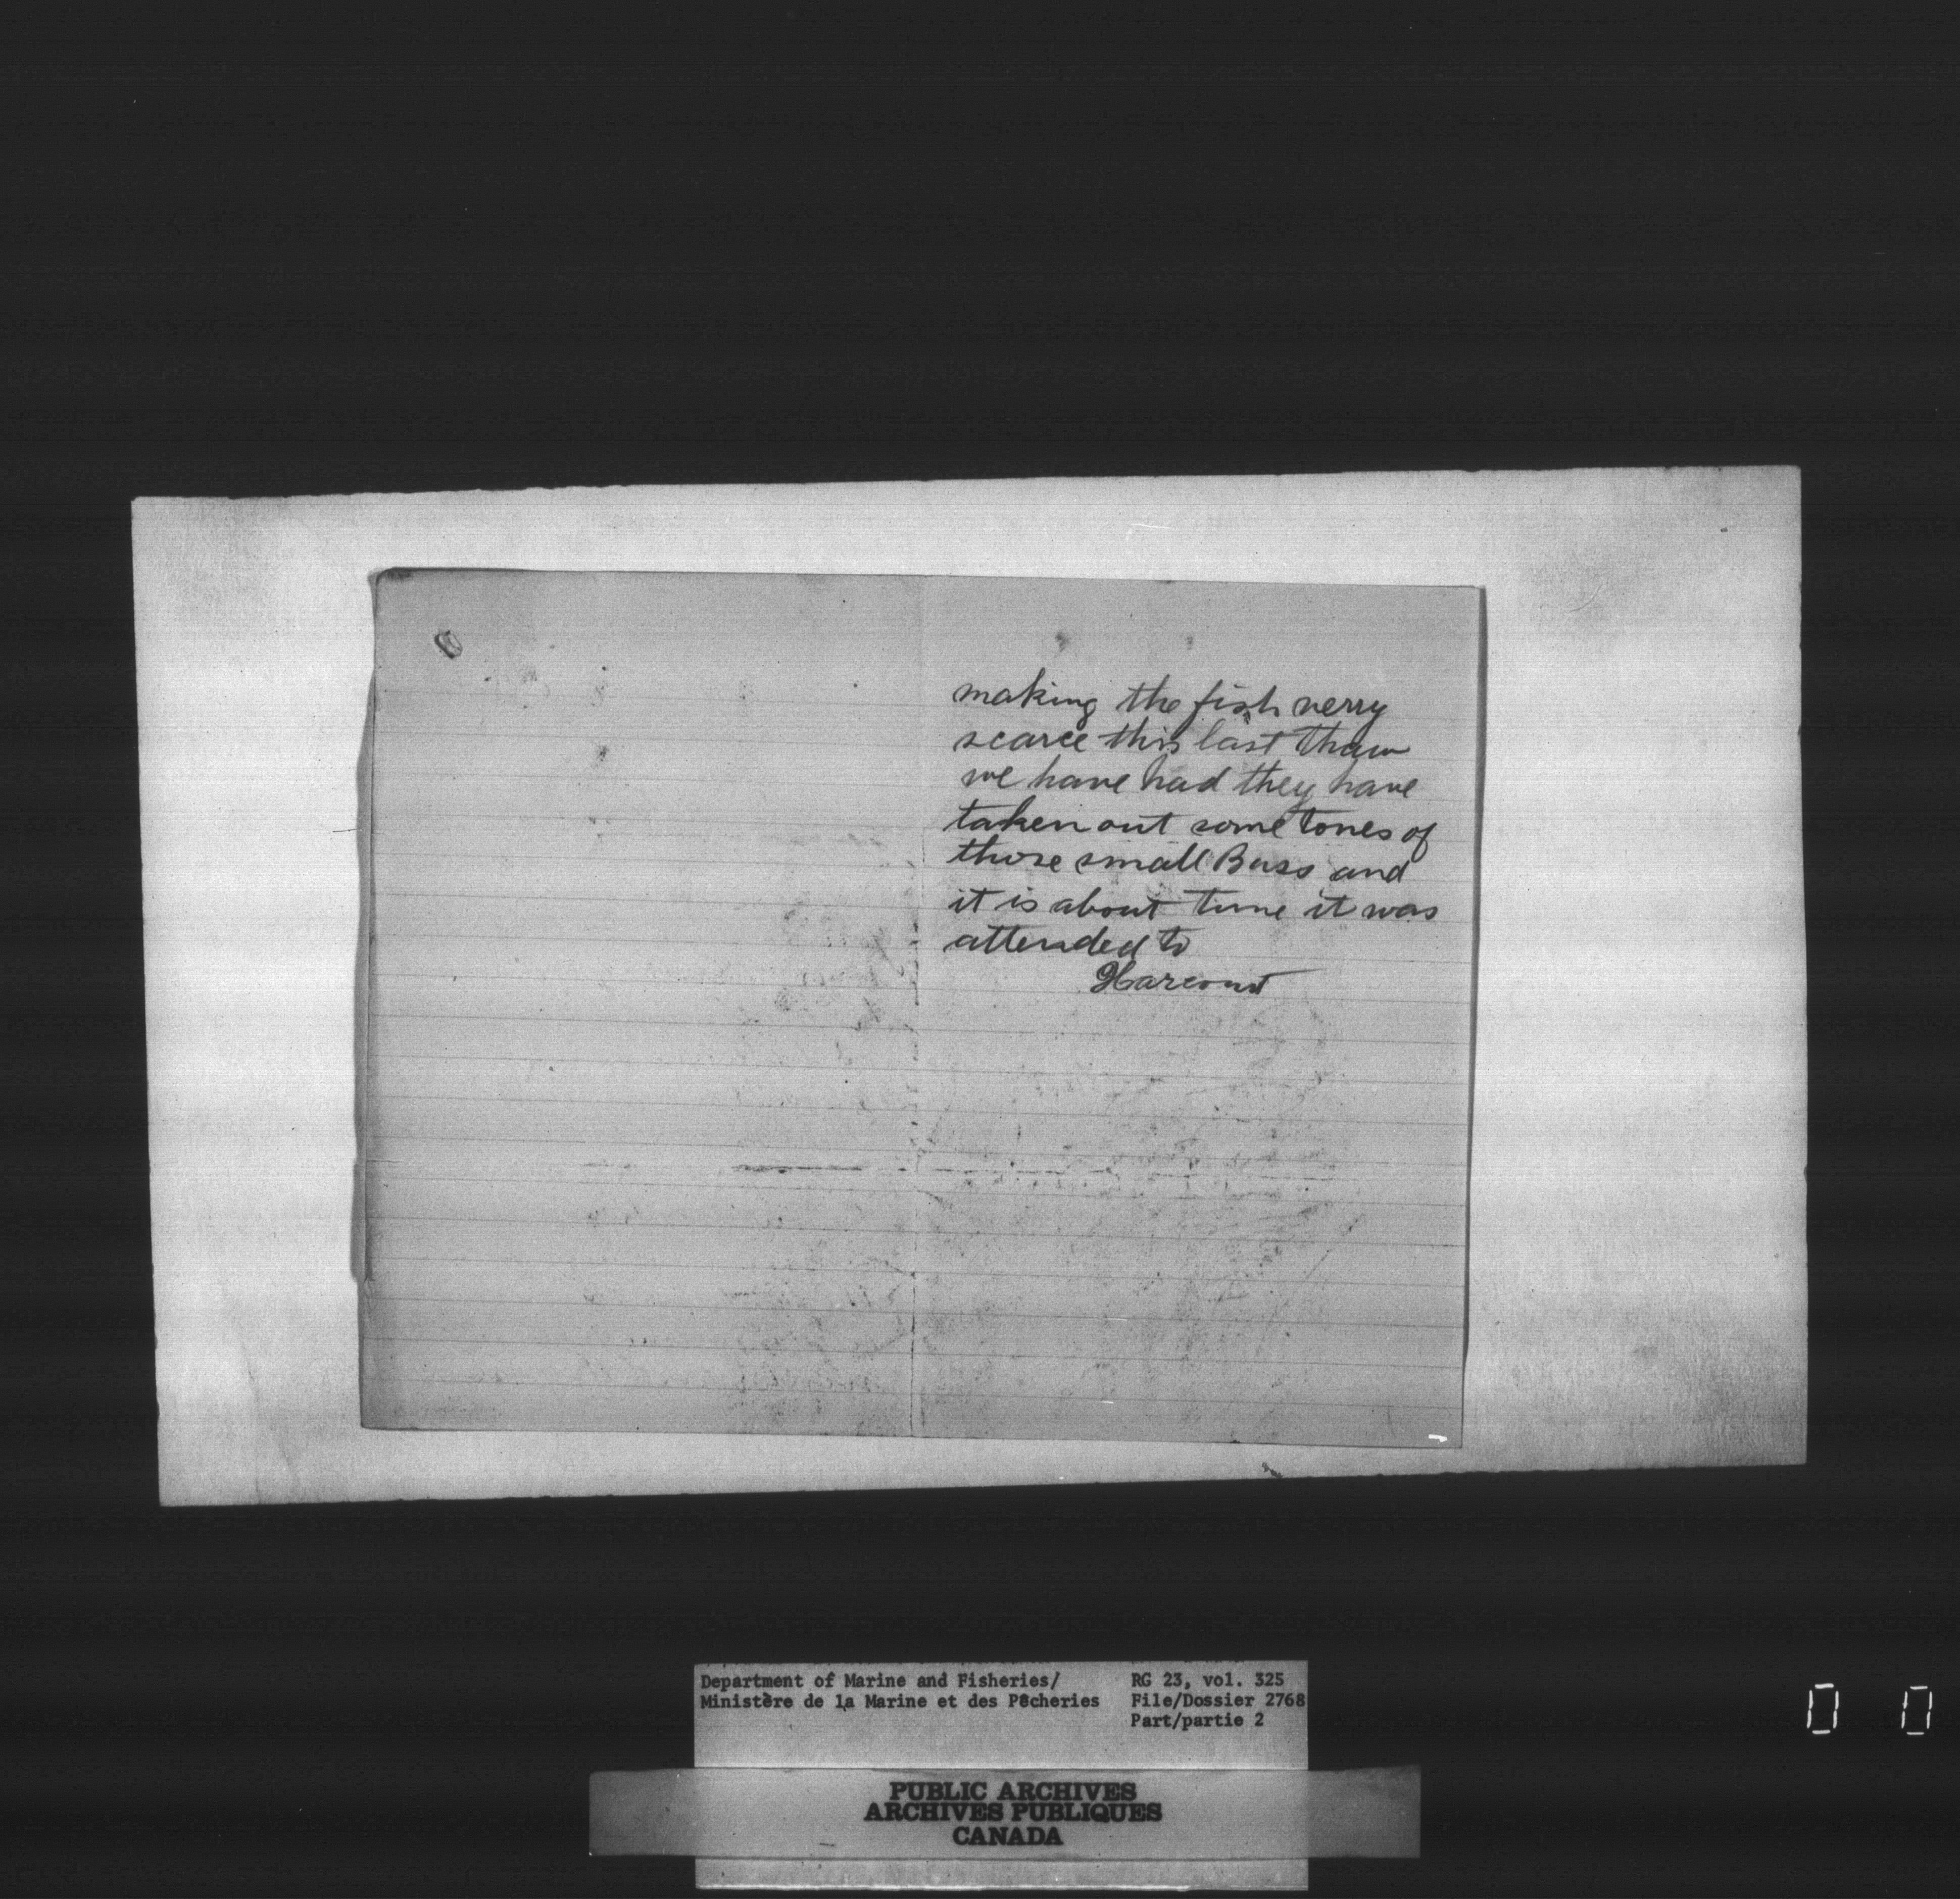 making the fish verry
scarce this last thaw
we have had they have
taken out some tones of
those small Bass and
it is about time it was
attended to
Harcourt
Department of Marine and Fisheries/
Ministère de la Marine et des Pêcheries
RG 23, vol. 325
File/Dossier 2768
Part/partie 2
PUBLIC ARCHIVES
ARCHIVES PUBLIQUES
CANADA
0 0